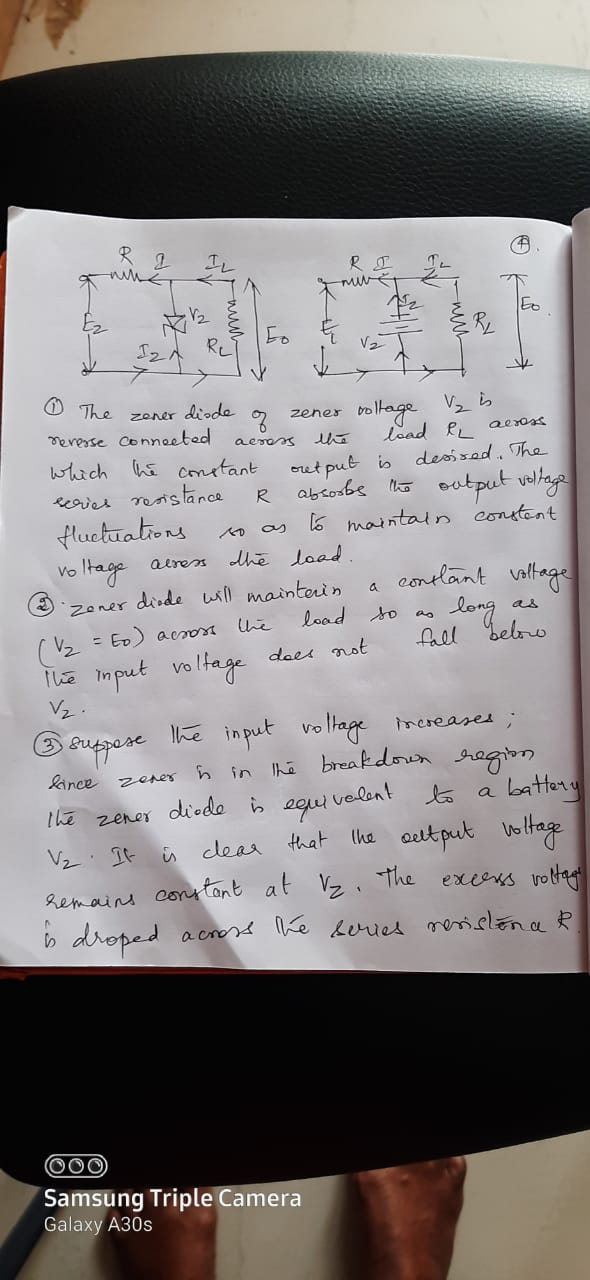 ④.
R I IL
R I IL
E0
Vz
Iz
RL
E0
Ei
Vz
RL
Iz
① The zener diode of zener voltage Vz is
reverse connected across the load RL across
which the constant output is desired. The
series resistance R absorbs the output voltage
fluctuations so as to maintain constent
voltage across the load.
② zener diode will maintain a constant voltage
(Vz = E0) across the load so as long as
the input voltage does not fall below
Vz.
③ suppose the input voltage increases;
since zener is in the breakdown region
the zener diode is equivalent to a battery
Vz. It is clear that the output voltage
remains constant at Vz. The excess voltag
is droped across the series R.
Samsung Triple Camera
Galaxy A30s